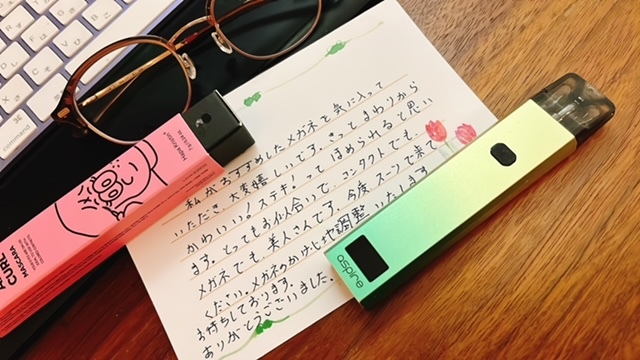 command
Hapa Kristin
CURL
MASCARA
私がおすすめしたメガネを気に入って
いただき、大変嬉しいです。きっとまわりから
かわいい。ステキ。って ほめられると思い
ます。とってもお似合いで、コンタクトでも、
メガネでも、美人さんです。今度 スーツで来て
ください。メガネのかけ心地調整いたします。
お待ちしております。
ありがとうございました。
aspire